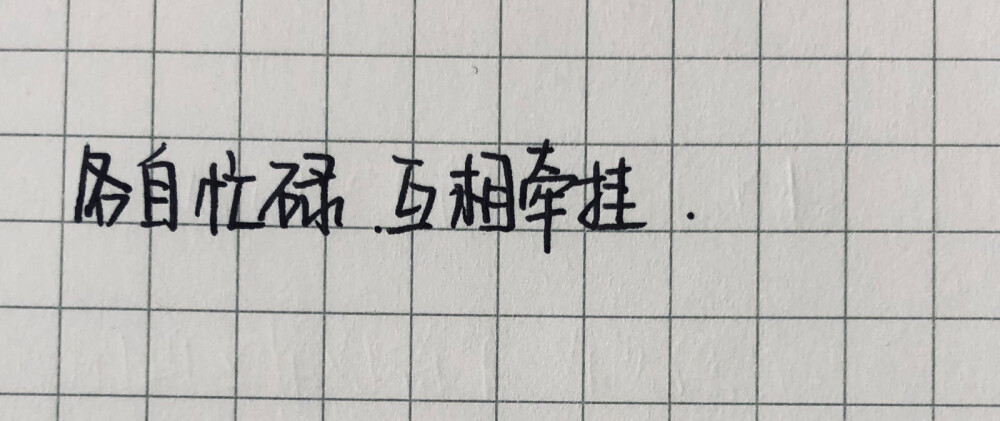 各自忙碌.互相牵挂.